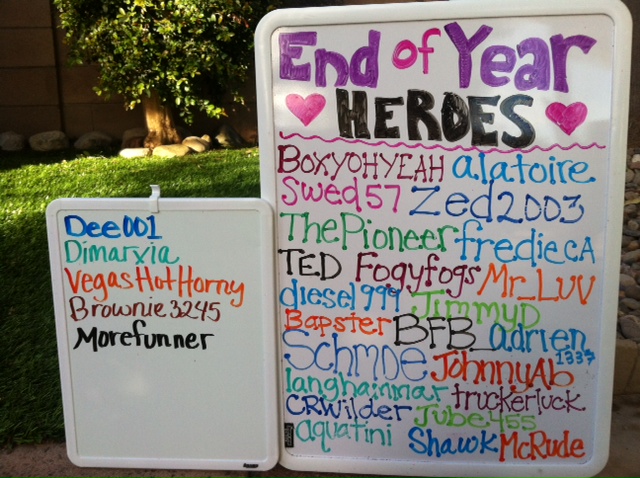 End of Year
HEROES
BOXYOHYEAH alatoire
Swed57 Zed2003
ThePioneer fredieCA
TED Fogyfogs Mr_LUV
diesel999 JimmyD
Bapster BFB adrien1337
Schmoe JohnnyAb
langhainmar truckerluck
CRWilder Jube455
aquatini Shawk McRude
Dee001
Dimarxia
VegasHotHorny
Brownie3245
Morefunner